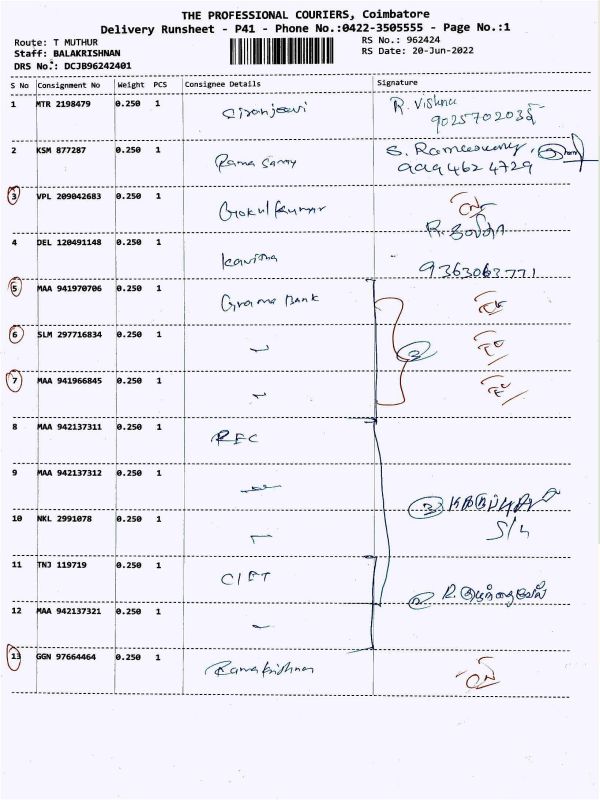 THE PROFESSIONAL COURIERS, Coimbatore
Delivery Runsheet - P41 - Phone No.:0422-3505555 - Page No.:1
Route: T MUTHUR
RS No.: 962424
Staff: BALAKRISHNAN
RS Date: 20-Jun-2022
DRS No.: DCJB96242401
S No Consignment No Weight PCS Consignee Details Signature
1 MTR 2198479 0.250 1 R. Vishnu
2 KSM 877287 0.250 1 Ramasamy S. Ramasamy
9994624729
3 VPL 209042683 0.250 1 Gokul Kumar
4 DEL 120491148 0.250 1 Kavitha R. கவிதா
9363063771
5 MAA 941970706 0.250 1 Grama Bank
6 SLM 297716834 0.250 1 3
7 MAA 941966845 0.250 1
8 MAA 942137311 0.250 1 REC
9 MAA 942137312 0.250 1
10 NKL 2991078 0.250 1 3
11 TNJ 119719 0.250 1
12 MAA 942137321 0.250 1 2 R.
13 GGN 97664464 0.250 1 Ramakrishnan